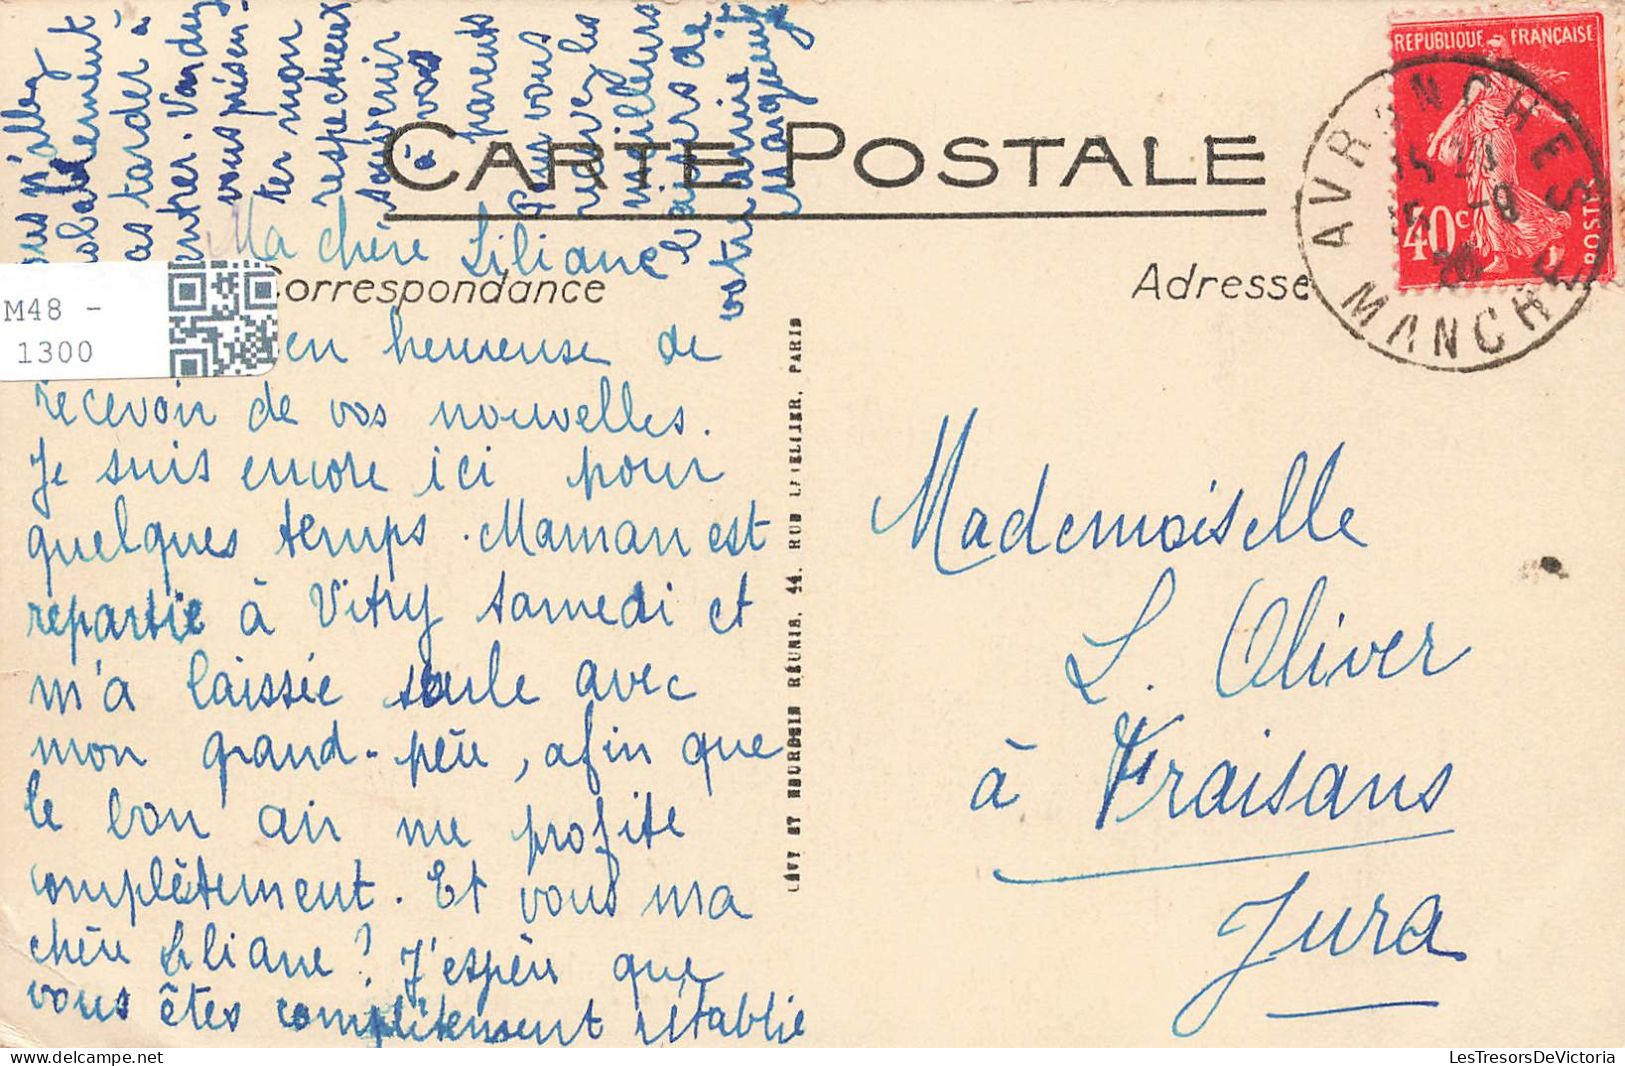 CARTE POSTALE
Correspondance
Adresse
Ma chère Liliane
en heureuse de
recevoir de vos nouvelles.
Je suis encore ici pour
quelques temps. Maman est
repartie à Vitry samedi et
m'a laissée seule avec
mon grand-père, afin que
le bon air me profite
complètement. Et vous ma
chère Liliane? J'espère que
vous êtes complètement rétablie
n'allez
tarder à
rentrer. Voudrez
vous présen-
ter mon
respectueux
souvenir
à vos
parents
Pour vous
recevez les
meilleurs
baisers de
votre amie
Marguerite
Mademoiselle
L. Oliver
à Fraisans
Jura
REPUBLIQUE FRANÇAISE
40c
POSTES
AVRANCHES
MANCHE
LÉVY ET NEURDEIN RÉUNIS, 44, RUE LETELLIER, PARIS
M48 -
1300
LesTresorsDeVictoria